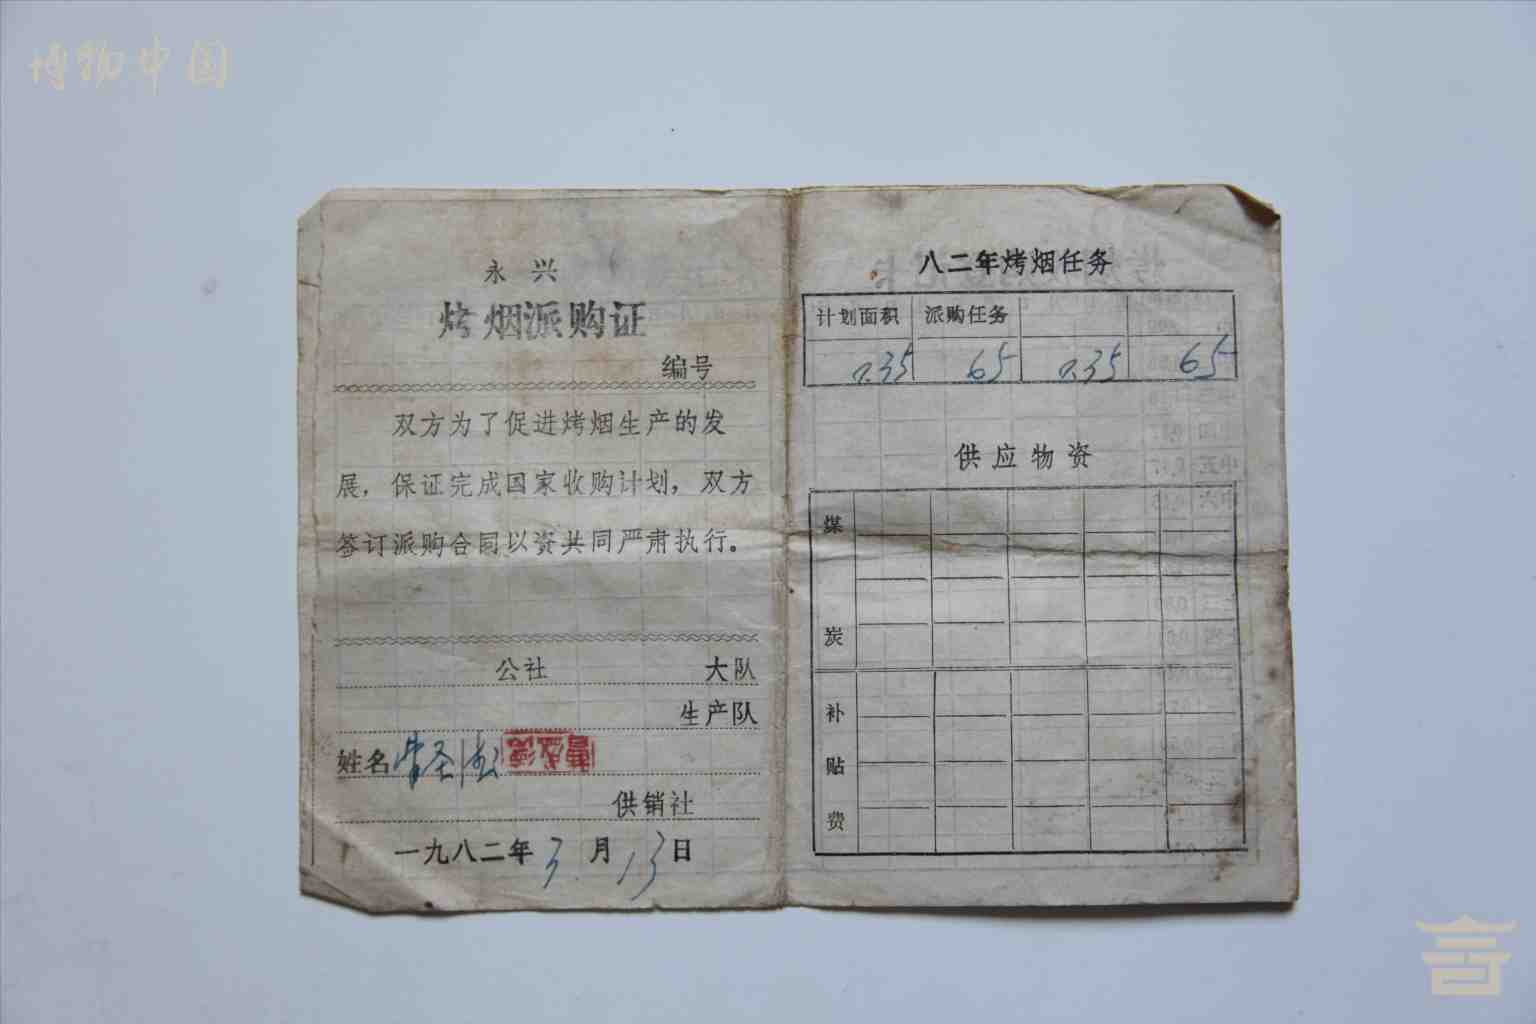 博物中国
永兴
烤烟派购证
编号
双方为了促进烤烟生产的发
展，保证完成国家收购计划，双方
签订派购合同以资共同严肃执行。
公社 大队
生产队
姓名
供销社
一九八二年3月13日
八二年烤烟任务
计划面积 派购任务
0.35 65 0.35 65
供应物资
煤炭
补贴费